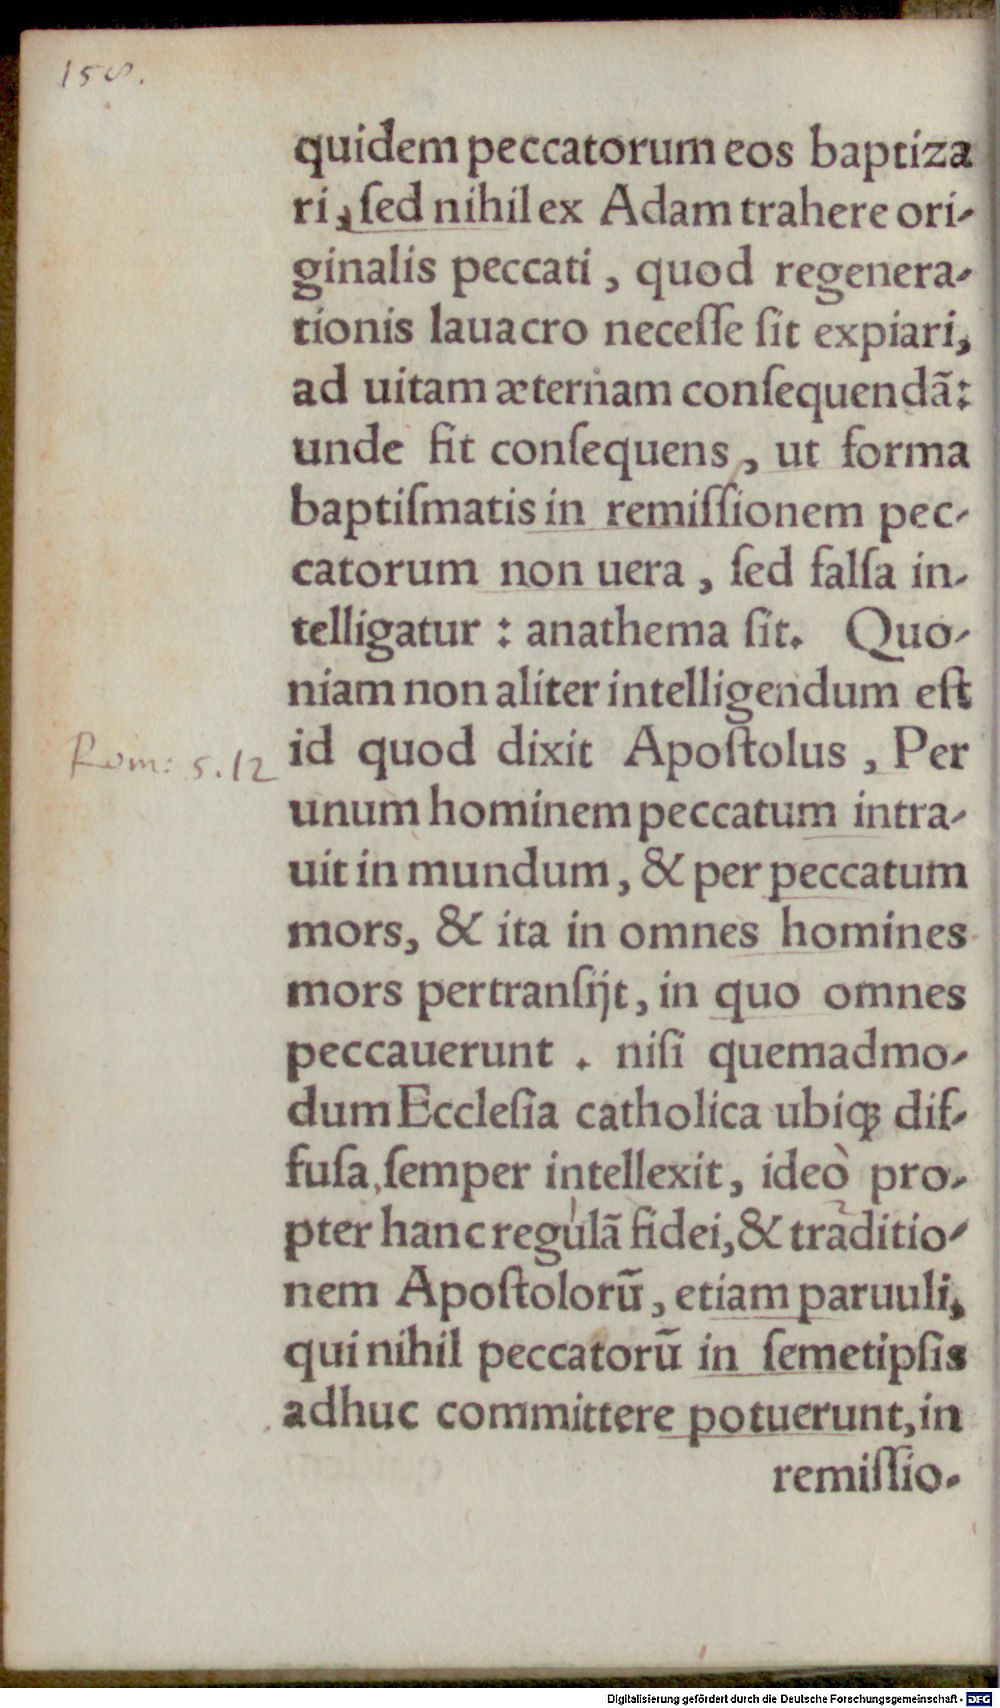 158.
quidem peccatorum eos baptiza
ri, ſed nihil ex Adam trahere ori-
ginalis peccati, quod regenera-
tionis lauacro neceſſe ſit expiari,
ad uitam æternam conſequendã:
unde fit conſequens, ut forma
baptiſmatis in remiſſionem pec-
catorum non uera, ſed falſa in-
telligatur: anathema ſit. Quo-
niam non aliter intelligendum eſt
Rom: 5.12 id quod dixit Apoſtolus, Per
unum hominem peccatum intra-
uit in mundum, & per peccatum
mors, & ita in omnes homines
mors pertranſijt, in quo omnes
peccauerunt. niſi quemadmo-
dum Eccleſia catholica ubiqꝫ dif-
fuſa, ſemper intellexit, ideò pro-
pter hanc regulã fidei, & traditio-
nem Apoſtolorũ, etiam paruuli,
qui nihil peccatorũ in ſemetipſis
adhuc committere potuerunt, in
remiſſio-
Digitalisierung gefördert durch die Deutsche Forschungsgemeinschaft - DFG